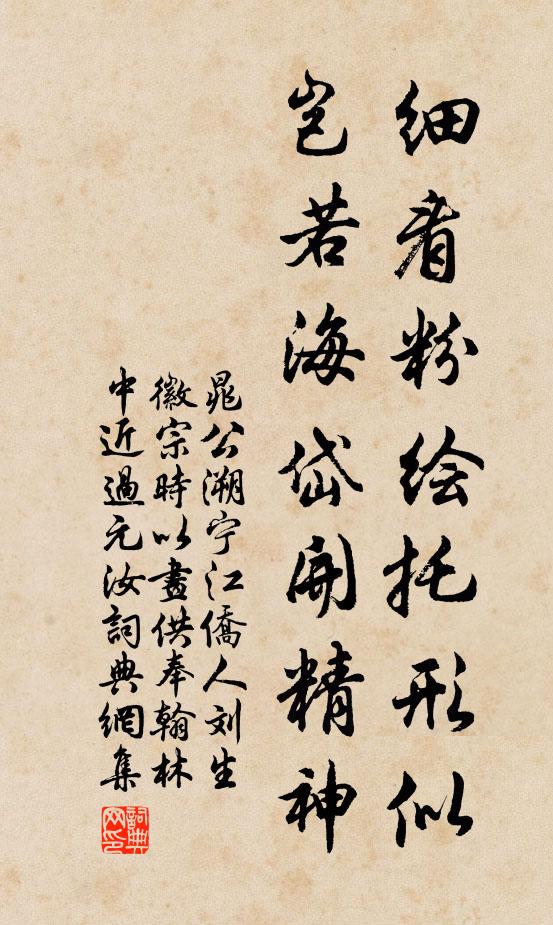 细看粉绘托形似
岂若海岱开精神
晁公溯宁江僑人刘生
徽宗時以畫供奉翰林
中近過元汝詞典網集
詞典网印